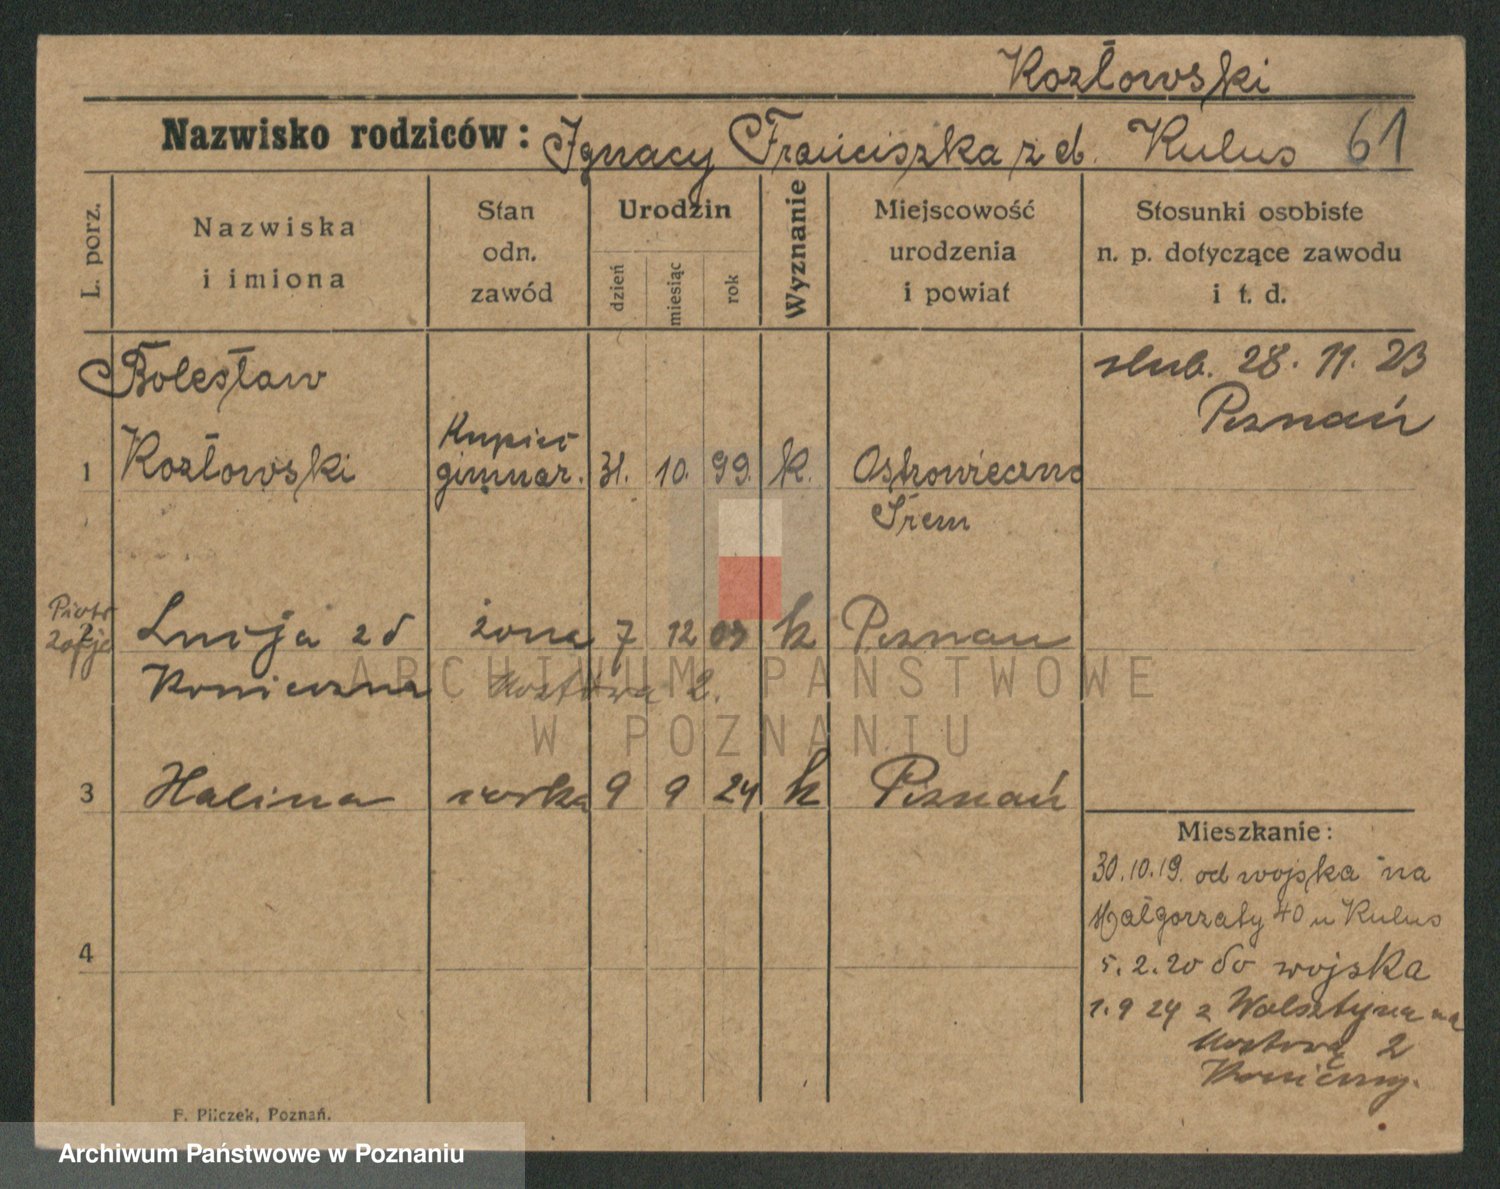 Kozłowski
Nazwisko rodziców: Ignacy Franciszka z d. Kulus 61
L. porz.
Nazwiska
i imiona
Stan
odn.
zawód
Urodzin
dzień
miesiąc
rok
Wyznanie
Miejscowość
urodzenia
i powiat
Stosunki osobiste
n. p. dotyczące zawodu
i t. d.
Bolesław
1 Kozłowski
Kupiec
gimnaz. 31. 10. 99. k. Ostrowieczno
Śrem
ślub. 28. 11. 23
Poznań
Piotr
Zofje
2 Lucja z d żona 7 12 03 k Poznań
Konieczna Mostowa 2.
3 Halina córka 9 9 24 k Poznań
4
Mieszkanie:
30.10.19. od wojska na
Małgorzaty 40 u Kulus
5.2.20 do wojska
1.9 24 z Wolsztyna na
Mostową 2
ARCHIWUM PAŃSTWOWE
W POZNANIU
F. Pilczek, Poznań.
Archiwum Państwowe w Poznaniu